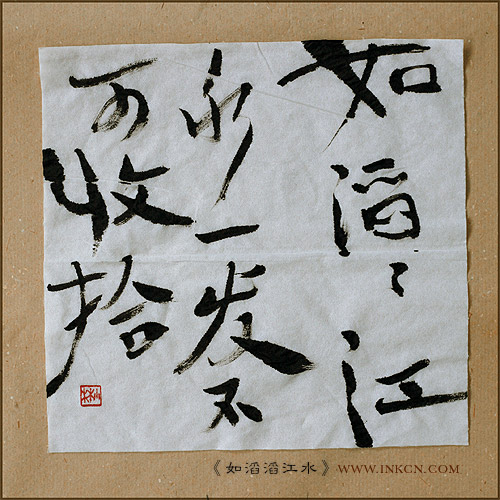 如滔々江
水一发不
可收拾
《如滔滔江水》WWW.INKCN.COM